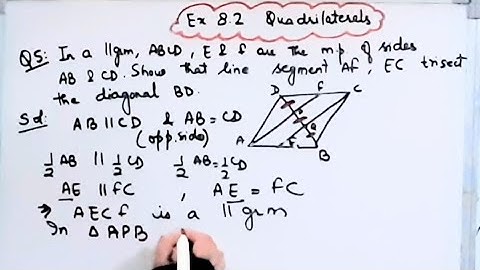 Ex 8.2 Quadrilaterals
Q5: In a ||gm, ABCD, E & f are the m.p of sides
AB & CD. Show that line segment Af, EC trisect
the diagonal BD.
D F C
P
Q
A E B
Sol: AB || CD & AB = CD
(opp. side)
1/2 AB || 1/2 CD 1/2 AB = 1/2 CD
AE || fC , AE = fC
⇒ AECf is a ||grm
In △ APB